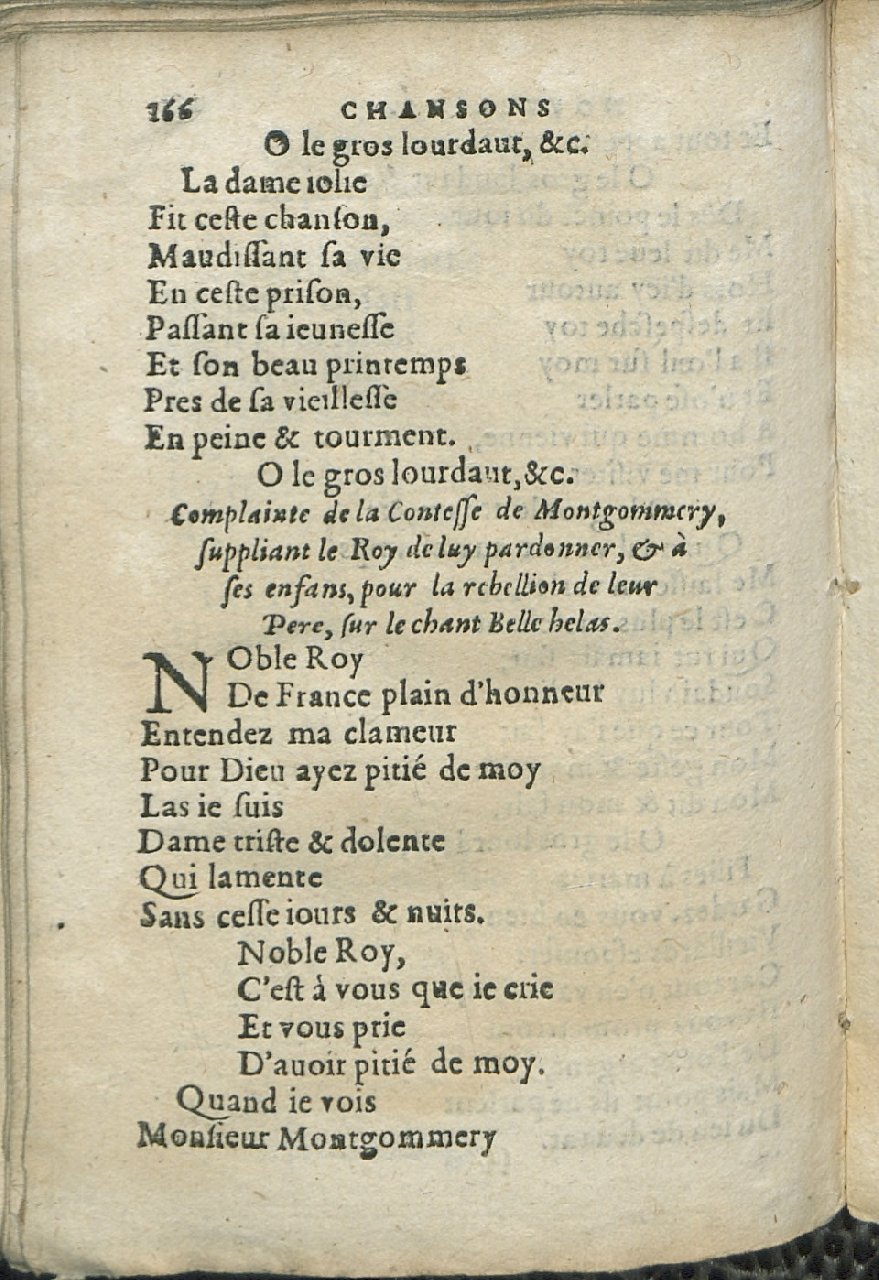 166 CHANSONS
O le gros lourdaut, &c.
La dame iolie
Fit ceſte chanſon,
Maudiſſant ſa vie
En ceſte priſon,
Paſſant ſa ieuneſſe
Et ſon beau printemps
Pres de ſa vieilleſſe
En peine & tourment.
O le gros lourdaut, &c.
Complainte de la Conteſſe de Montgommery,
ſuppliant le Roy de luy pardonner, & à
ſes enfans, pour la rebellion de leur
Pere, ſur le chant Belle helas.
NOble Roy
De France plain d'honneur
Entendez ma clameur
Pour Dieu ayez pitié de moy
Las ie ſuis
Dame triſte & dolente
Qui lamente
Sans ceſſe iours & nuits.
Noble Roy,
C'eſt à vous que ie crie
Et vous prie
D'auoir pitié de moy.
Quand ie vois
Monſieur Montgommery